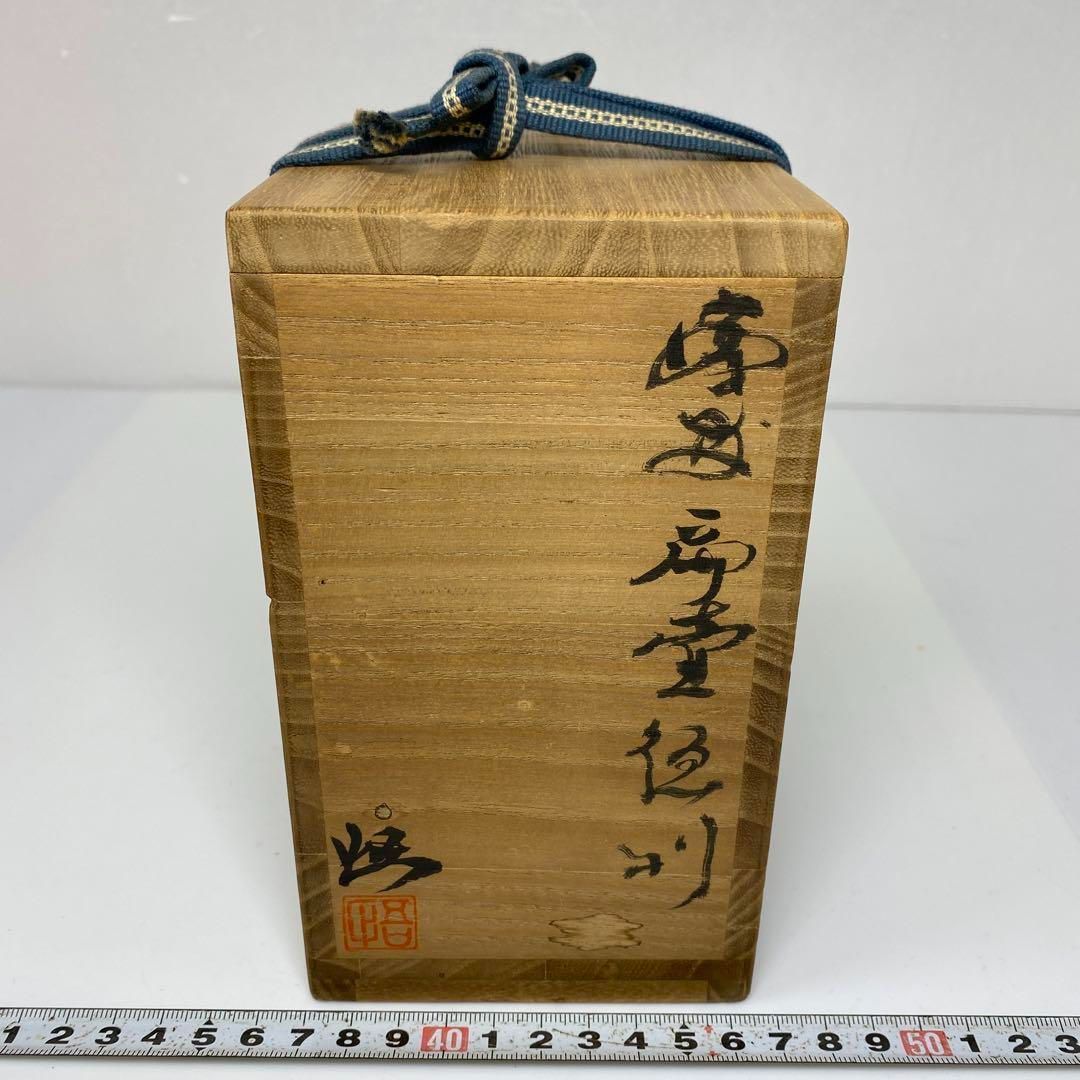 扁壷徳利
悟
悟
1 2 3 4 5 6 7 8 9 40 1 2 3 4 5 6 7 8 9 50 1 2 3